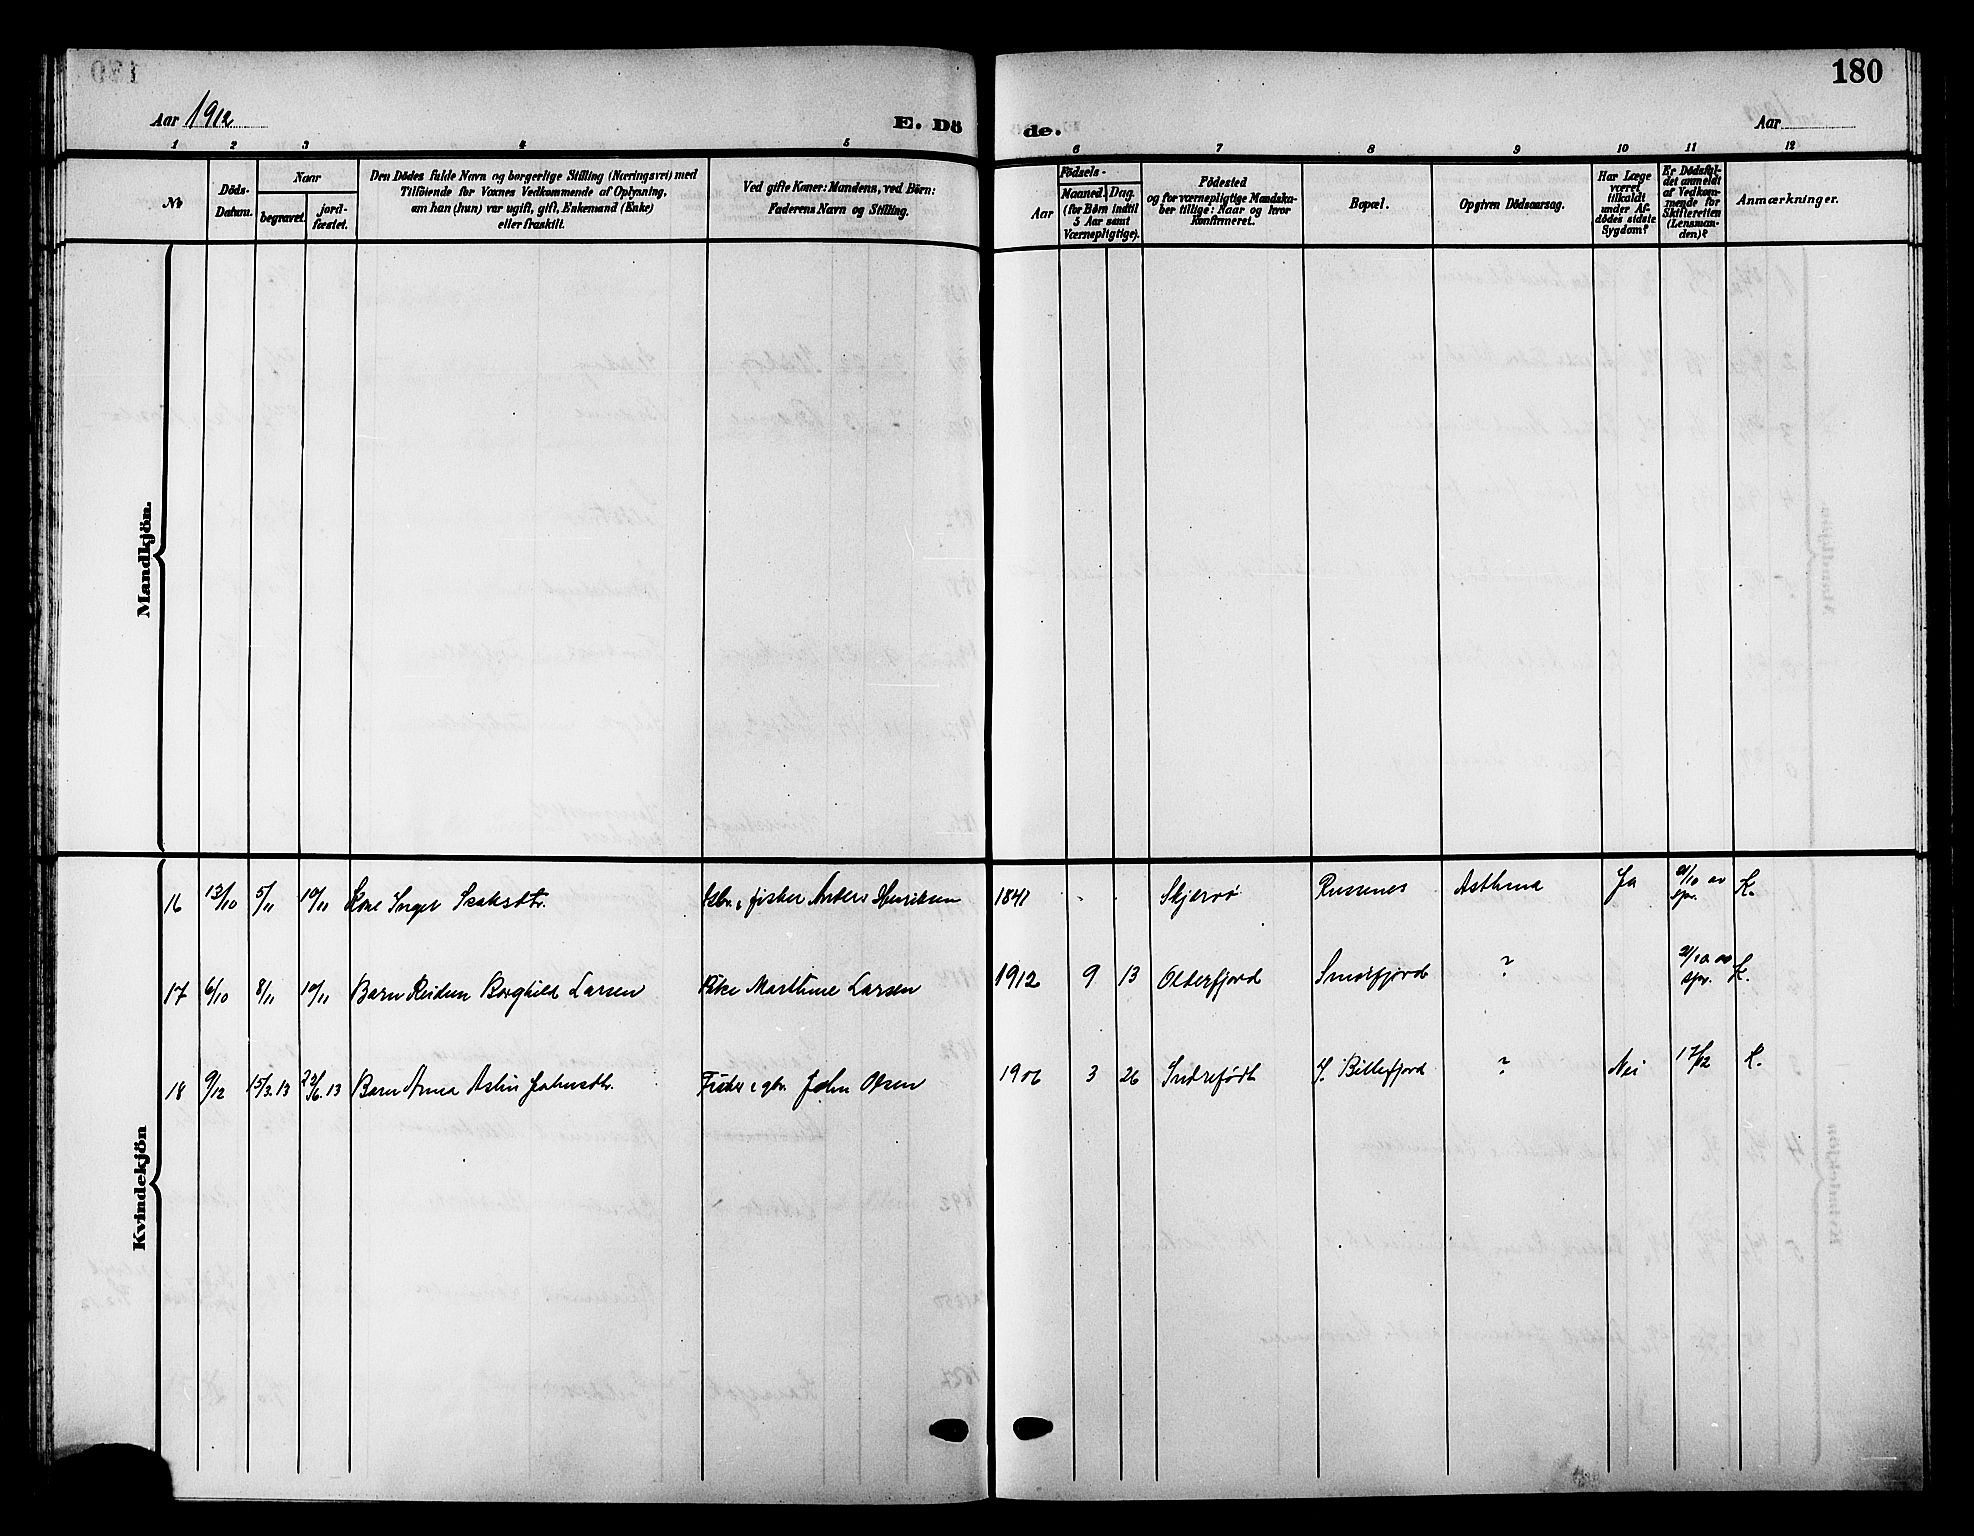 180
Aar 1912
E. Dö
de.
Aar
1 2 3 4 5 6 7 8 9 10 11 12
No
Döds-
Datum.
Naar
begravet.
jord-
fæstet.
Den Dödes fulde Navn og borgerlige Stilling (Næringsvei) med
Tilföiende for Voxnes Vedkommende af Oplysning,
om han (hun) var ugift, gift, Enkemand (Enke)
eller fraskilt.
Ved gifte Koner: Mandens, ved Börn:
Faderens Navn og Stilling.
Födsels-
Aar
Maaned. Dag.
(for Börn indtil
5 Aar samt
Værnepligtige).
Födested
og for værnepligtige Mandska-
ber tillige: Naar og hvor
konfirmeret.
Bopæl.
Opgiven Dödsaarsag.
Har Læge
været
tilkaldt
under Af-
dödes sidste
Sygdom?
Er Dödsfal-
det anmeldt
af Vedkom-
mende for
Skifteretten
(Lensman-
den)?
Anmærkninger.
Mandkjön.
Kvindekjön
16 13/10 5/11 10/11 Kone Inger Isaksdtr. fisker Anders Henriksen 1841 Skjervö Russenes Asthma Ja K.
17 6/10 8/11 10/11 Barn Reidun Borghild Larsen Pike Marthine Larsen 1912 9 13 Olderfjord Smørfjord ? K.
18 9/12 15/3.13 Barn Anna Aslin Johnsdtr. Fisker, gbr. John Olsen 1906 3 26 Indrefjord Y. Billefjord ? Nei 17/12 K.